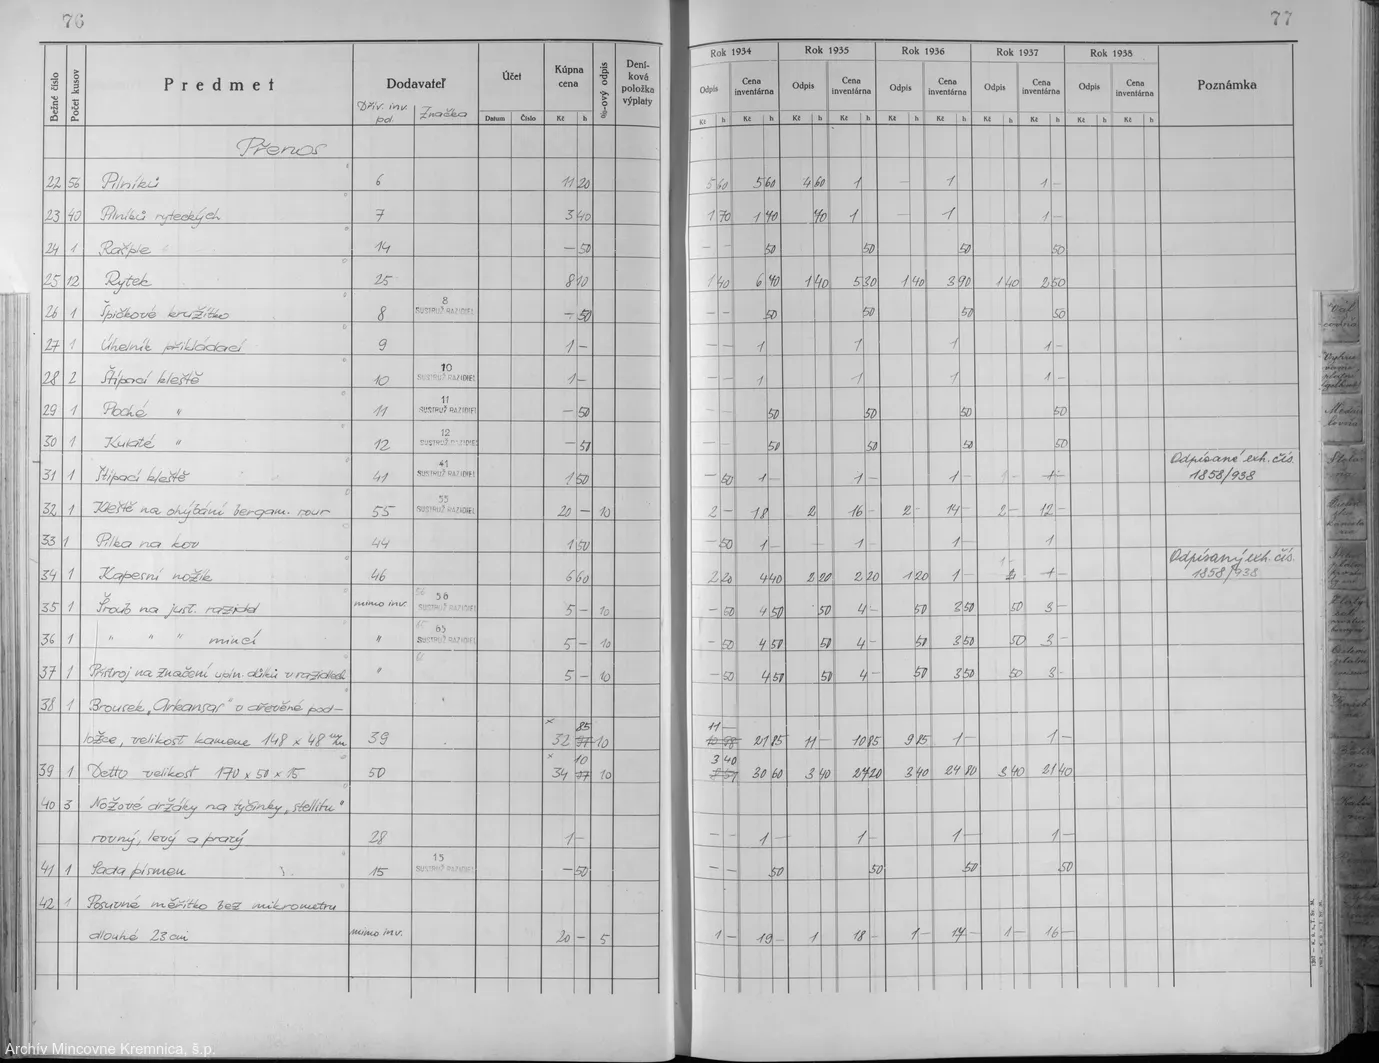 76
77
Bežné číslo Počet kusov Predmet Dodavateľ Účet Kúpna cena %-ový odpis Dení- ková položka výplaty
Dřív. inv. poł. Značka Datum Číslo Kč h
Rok 1934 Rok 1935 Rok 1936 Rok 1937 Rok 1938 Poznámka
Odpis Cena inventárna Odpis Cena inventárna Odpis Cena inventárna Odpis Cena inventárna Odpis Cena inventárna
Kč h Kč h Kč h Kč h Kč h Kč h Kč h Kč h Kč h Kč h
Přenos
22 56 Pilníků 6 11 20 5 60 5 60 4 60 1 — 1 1 —
23 40 Pilníků ryteckých 7 3 40 1 70 1 70 70 1 — 1 1 —
24 1 Rašple 14 — 50 — — 50 50 50 50
25 12 Rytek 25 8 10 1 40 6 70 1 40 5 30 1 40 3 90 1 40 2 50
26 1 Špičkové kružítko 8 8 SUSTRUŽ RAZIDIEL — 50 — — 50 50 50 50
27 1 Úhelník přikládací 9 1 — 1 1 1 1 —
28 2 Štípací kleště 10 10 SUSTRUŽ RAZIDIEL 1 — 1 1 1 1 —
29 1 Ploché " 11 11 SUSTRUŽ RAZIDIEL — 50 50 50 50 50
30 1 Kulaté " 12 12 SUSTRUŽ RAZIDIEL — 50 50 50 50 50
31 1 Štípací kleště 41 41 SUSTRUŽ RAZIDIEL 1 50 — 50 1 — 1 — 1 — 1 — Odpísané exh. čís. 1858/938
32 1 Kleště na ohýbání bergam. rour 55 55 SUSTRUŽ RAZIDIEL 20 — 10 2 — 18 2 16 — 2 — 14 — 2 — 12 —
33 1 Pilka na kov 44 1 50 — 50 1 — 1 — 1 — 1
34 1 Kapesní nožík 46 6 60 2 20 4 40 2 20 2 20 1 20 1 — 1 — 1 — Odpísaný exh. čís. 1858/938
35 1 Šroub na just. razidel mimo inv. 58 SUSTRUŽ RAZIDIEL 5 — 10 — 50 4 50 50 4 — 50 3 50 50 3 —
36 1 " " " mincí " 65 SUSTRUŽ RAZIDIEL 5 — 10 — 50 4 50 50 4 — 50 3 50 50 3 —
37 1 Přístroj na značení upín. důlků v razidlech " 5 — 10 — 50 4 50 50 4 — 50 3 50 50 3 —
38 1 Brousek „Arkansas" v dřevěné pod-
ložce, velikost kamene 148 x 48 m/m 39 x 32 85 10 11 — 21 85 11 — 10 85 9 85 1 — 1 —
39 1 Detto velikost 170 x 50 x 15 50 x 34 10 10 3 40 30 60 3 40 27 20 3 40 24 80 3 40 21 40
40 3 Nožové držáky na tyčinky „stellitu"
rovný, levý a pravý 28 1 — — — 1 — 1 — 1 — 1 —
41 1 Sada písmen 15 15 SUSTRUŽ RAZIDIEL — 50 — — 50 50 50 50
42 1 Posuvné měřítko bez mikrometru
dlouhé 23 cm mimo inv. 20 — 5 1 — 19 — 1 18 — 1 — 17 — 1 — 16 —
Archív Mincovne Kremnica, š.p.